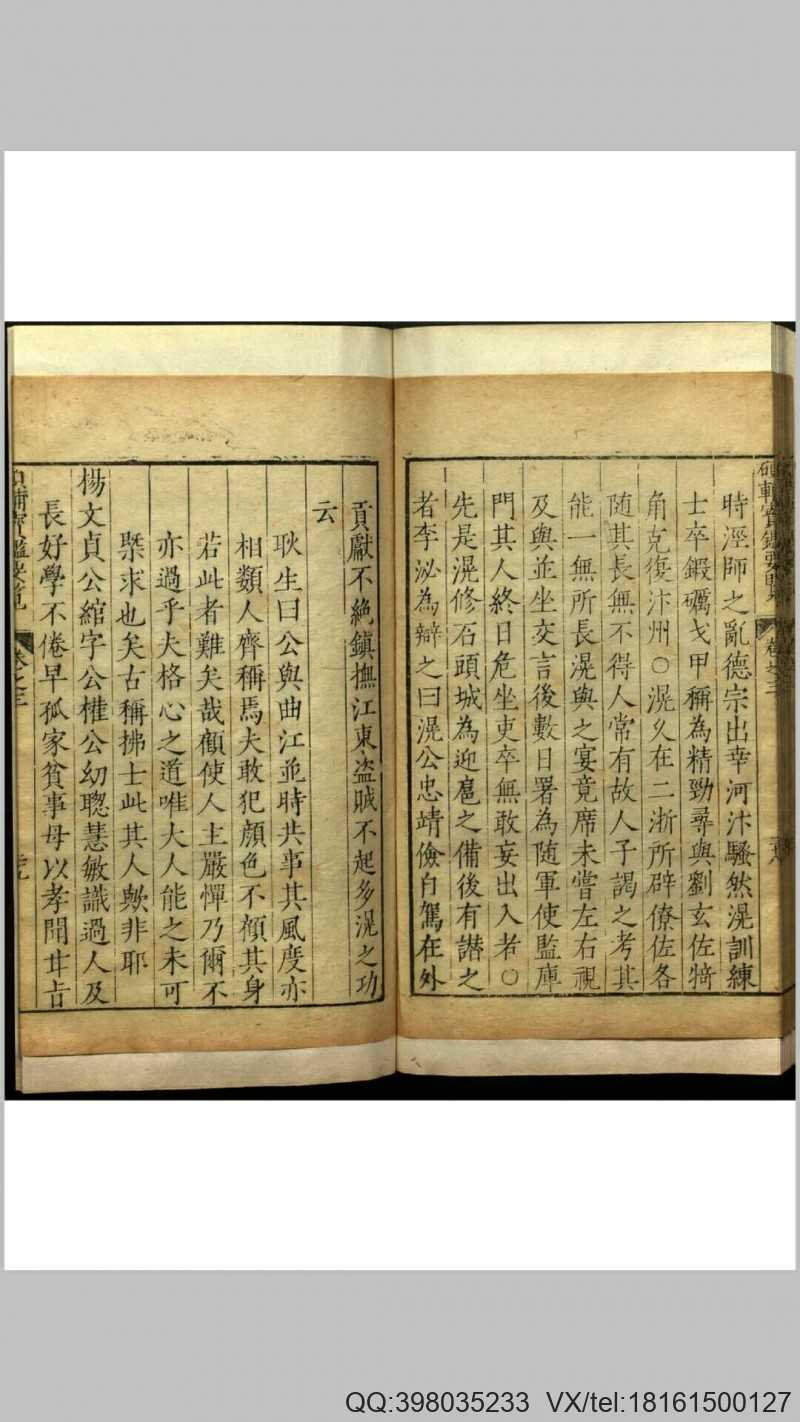 時涇師之亂德宗出幸河汴騷然滉訓練
士卒鍛礪戈甲稱為精勁尋與劉玄佐犄
角克復汴州○滉久在二浙所辟僚佐各
隨其長無不得人常有故人子謁之考其
能一無所長滉與之宴竟席未嘗左右視
及與並坐交言後數日署為隨軍使監庫
門其人終日危坐吏卒無敢妄出入者○
先是滉修石頭城為迎扈之備後有譖之
者李泌為辯之曰滉公忠靖儉自駕在外
貢獻不絕鎮撫江東盗賊不起多滉之功
云
耿生曰公與曲江並時共事其風度亦
相類人齊稱焉夫敢犯顔色不顧其身
若此者難矣哉顧使人主嚴憚乃爾不
亦過乎大格心之道唯大人能之未可
槩求也矣古稱拂士此其人歟非耶
楊文貞公綰字公權公幼聰慧敏識過人及
長好學不倦早孤家貧事母以孝聞甘旨
卷之三
QQ:398035233 VX/tel:18161500127